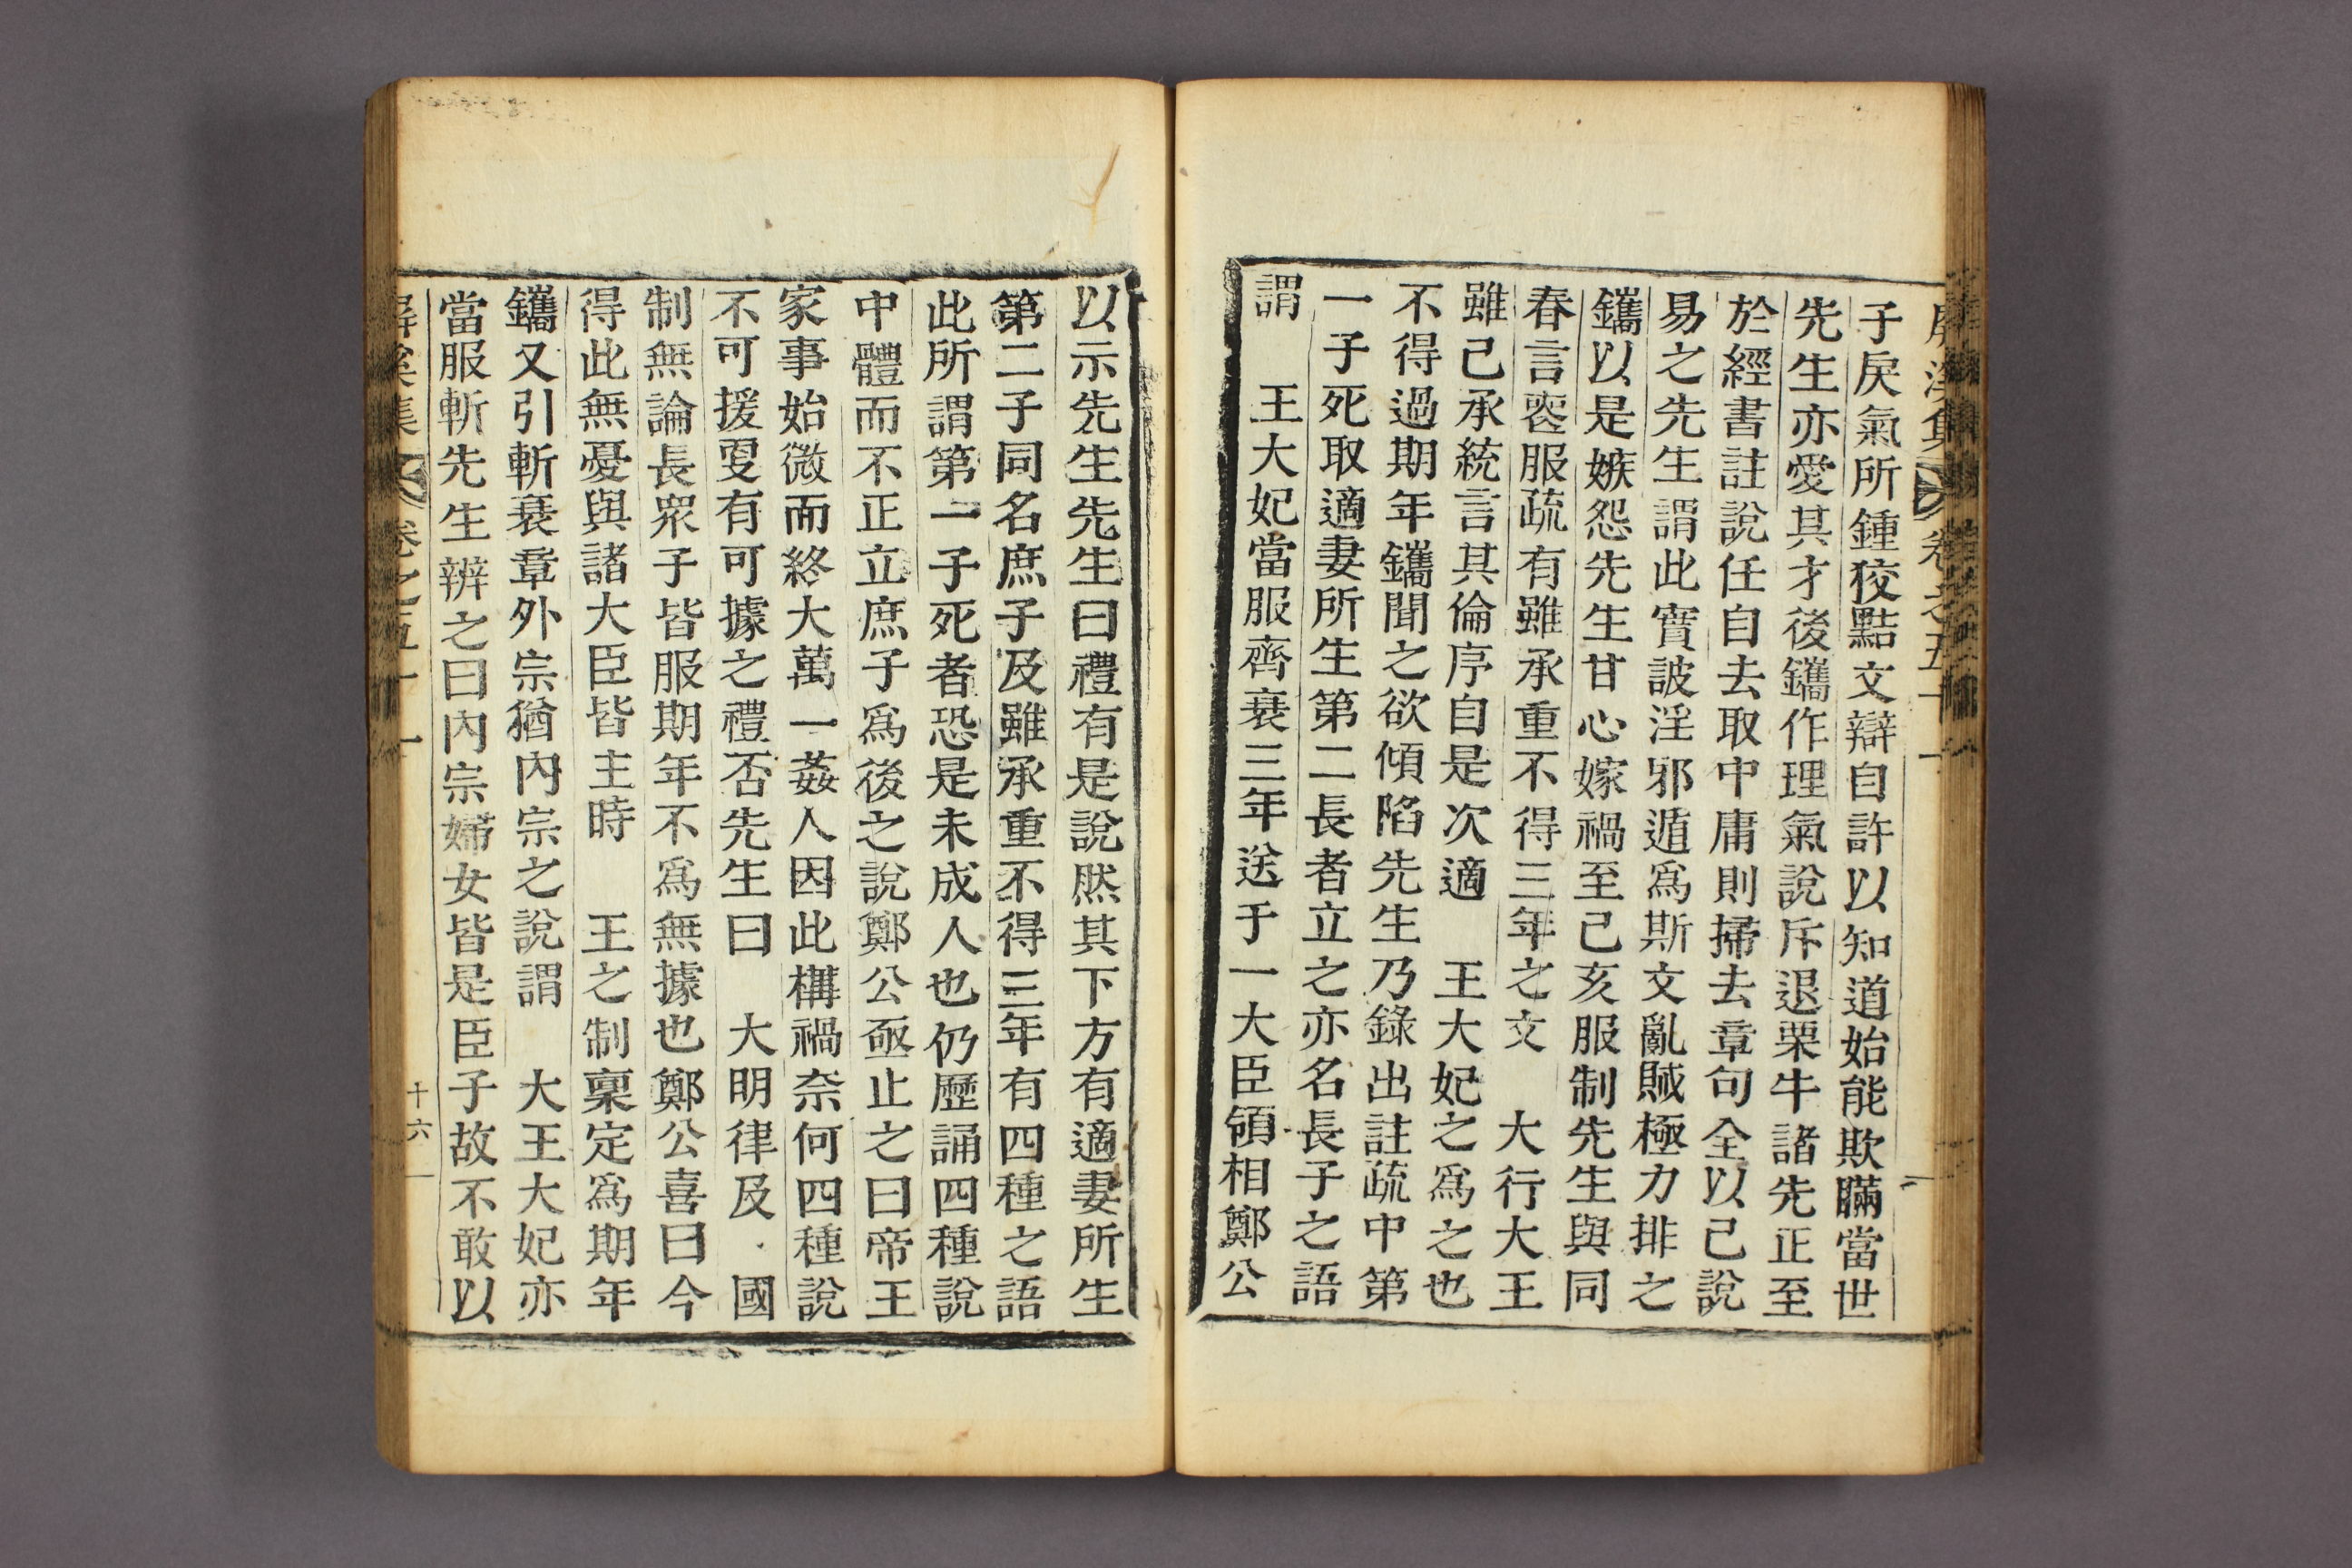 子戾氣所鍾狡黠文辯自許以知道始能欺瞞當世
先生亦愛其才後鑴作理氣說斥退栗牛諸先正至
於經書註說任自去取中庸則掃去章句全以己說
易之先生謂此實詖淫邪遁爲斯文亂賊極力排之
鑴以是嫉怨先生甘心嫁禍至己亥服制先生與同
春言喪服疏有雖承重不得三年之文 大行大王
雖已承統言其倫序自是次適 王大妃之爲之也
不得過期年鑴聞之欲傾陷先生乃錄出註疏中第
一子死取適妻所生第二長者立之亦名長子之語
謂 王大妃當服齊衰三年送于一大臣領相鄭公
以示先生先生曰禮有是說然其下方有適妻所生
第二子同名庶子及雖承重不得三年有四種之語
此所謂第一子死者恐是未成人也仍歷誦四種說
中體而不正立庶子爲後之說鄭公亟止之曰帝王
家事始微而終大萬一姦人因此構禍奈何四種說
不可援更有可據之禮否先生曰 大明律及 國
制無論長衆子皆服期年不爲無據也鄭公喜曰今
得此無憂與諸大臣皆主時 王之制稟定爲期年
鑴又引斬衰章外宗猶內宗之說謂 大王大妃亦
當服斬先生辨之曰內宗婦女皆是臣子故不敢以
屛溪集 卷之五十一 十六